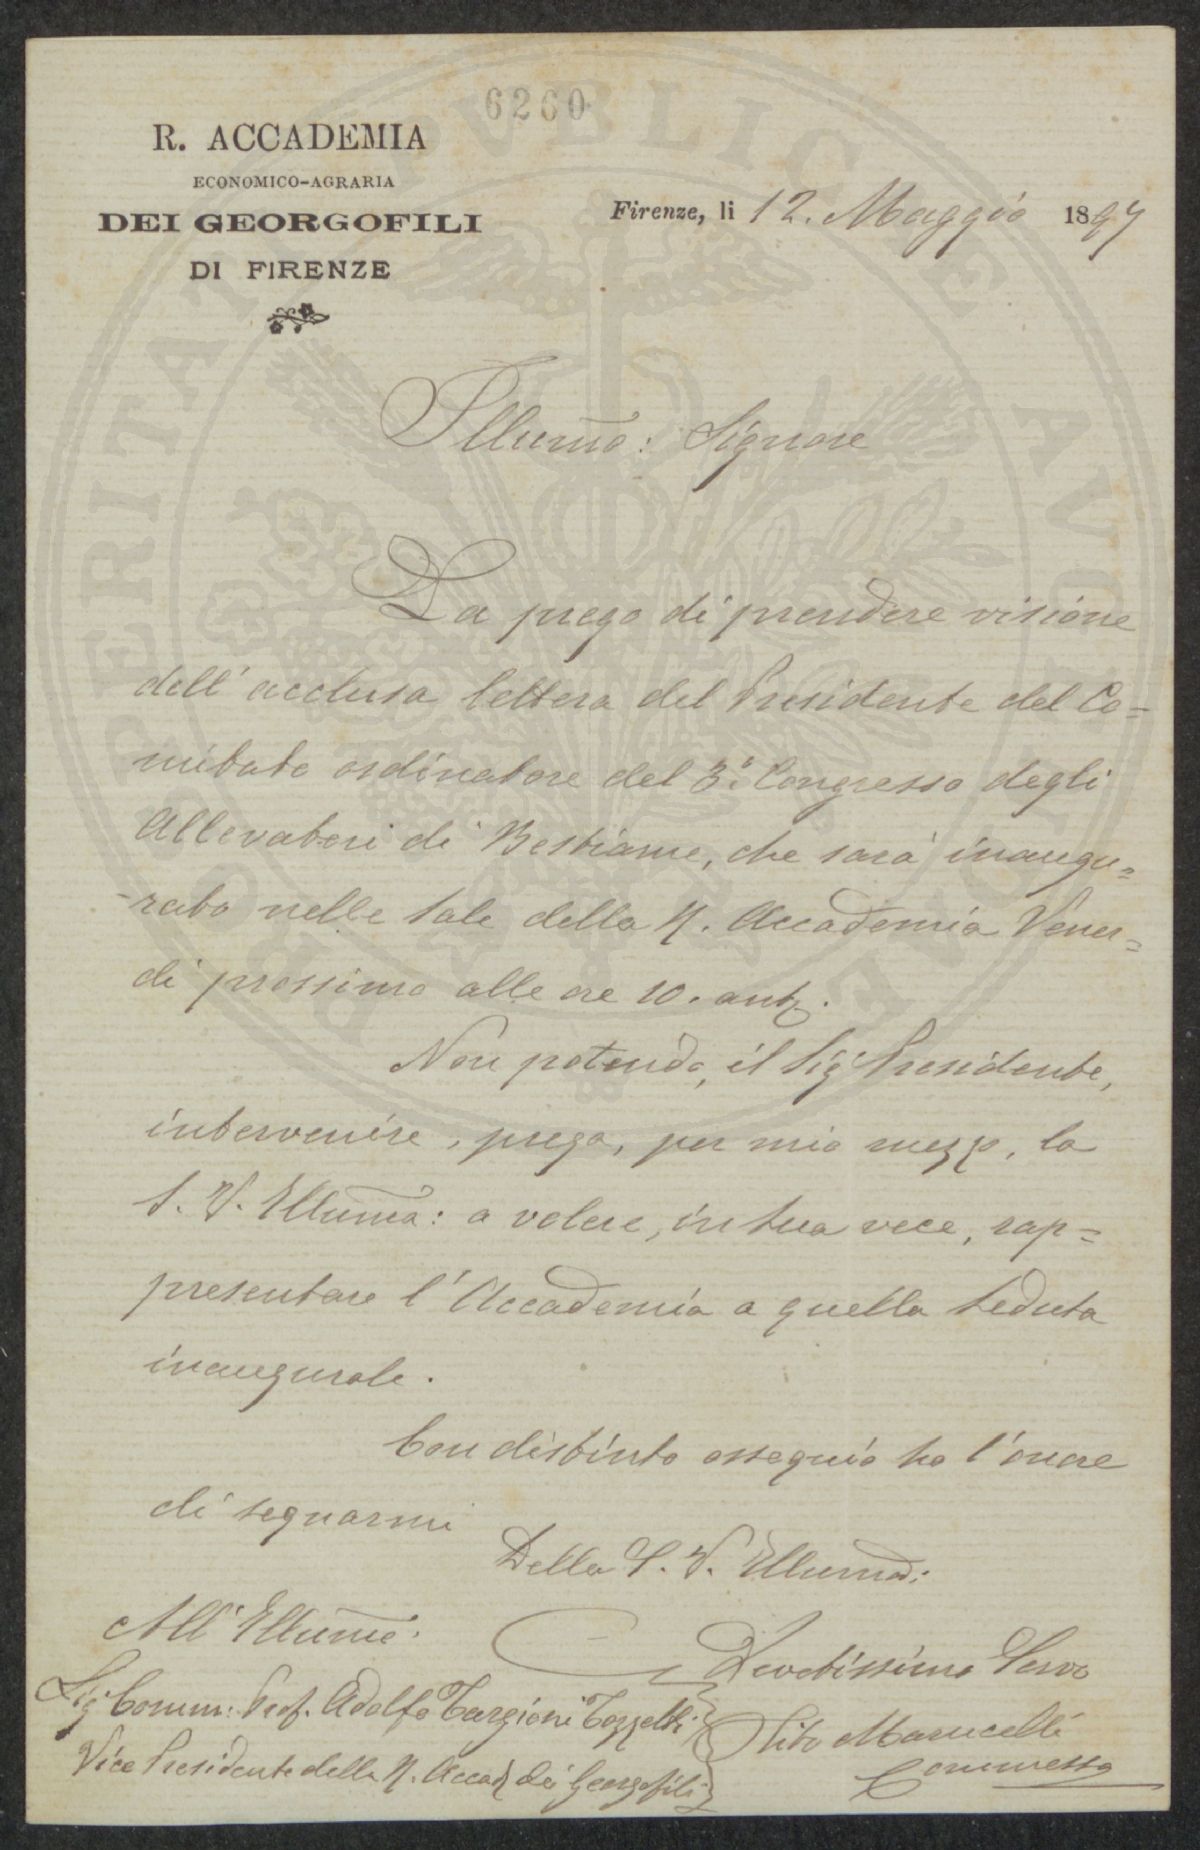 6260
R. ACCADEMIA
ECONOMICO-AGRARIA
DEI GEORGOFILI
DI FIRENZE
Firenze, li 12. Maggio 1897
Illumo: Signore
La prego di prendere visione
dell'acclusa lettera del Presidente del Co=
mitato ordinatore del 3° Congresso degli
Allevatori di Bestiame, che sarà inaugu=
-rato nelle sale della R. Accademia Vener=
dì prossimo alle ore 10. ant.
Non potendo, il Sig Presidente,
intervenire, prega, per mio mezzo, la
S. V. Illuma: a volere, in sua vece, rap=
presentare l'Accademia a quella seduta
inaugurale.
Con distinto ossequio ho l'onore
di segnarmi
Della S. V. Illuma:
All'Illumo:
Devotissimo Servo
Sig Comm: Prof. Adolfo Targioni Tozzetti
Tito Marucelli
Vice Presidente della R. Accad dei Georgofili
Commesso
PROSPERITATI PVBLICAE AVGENDAE